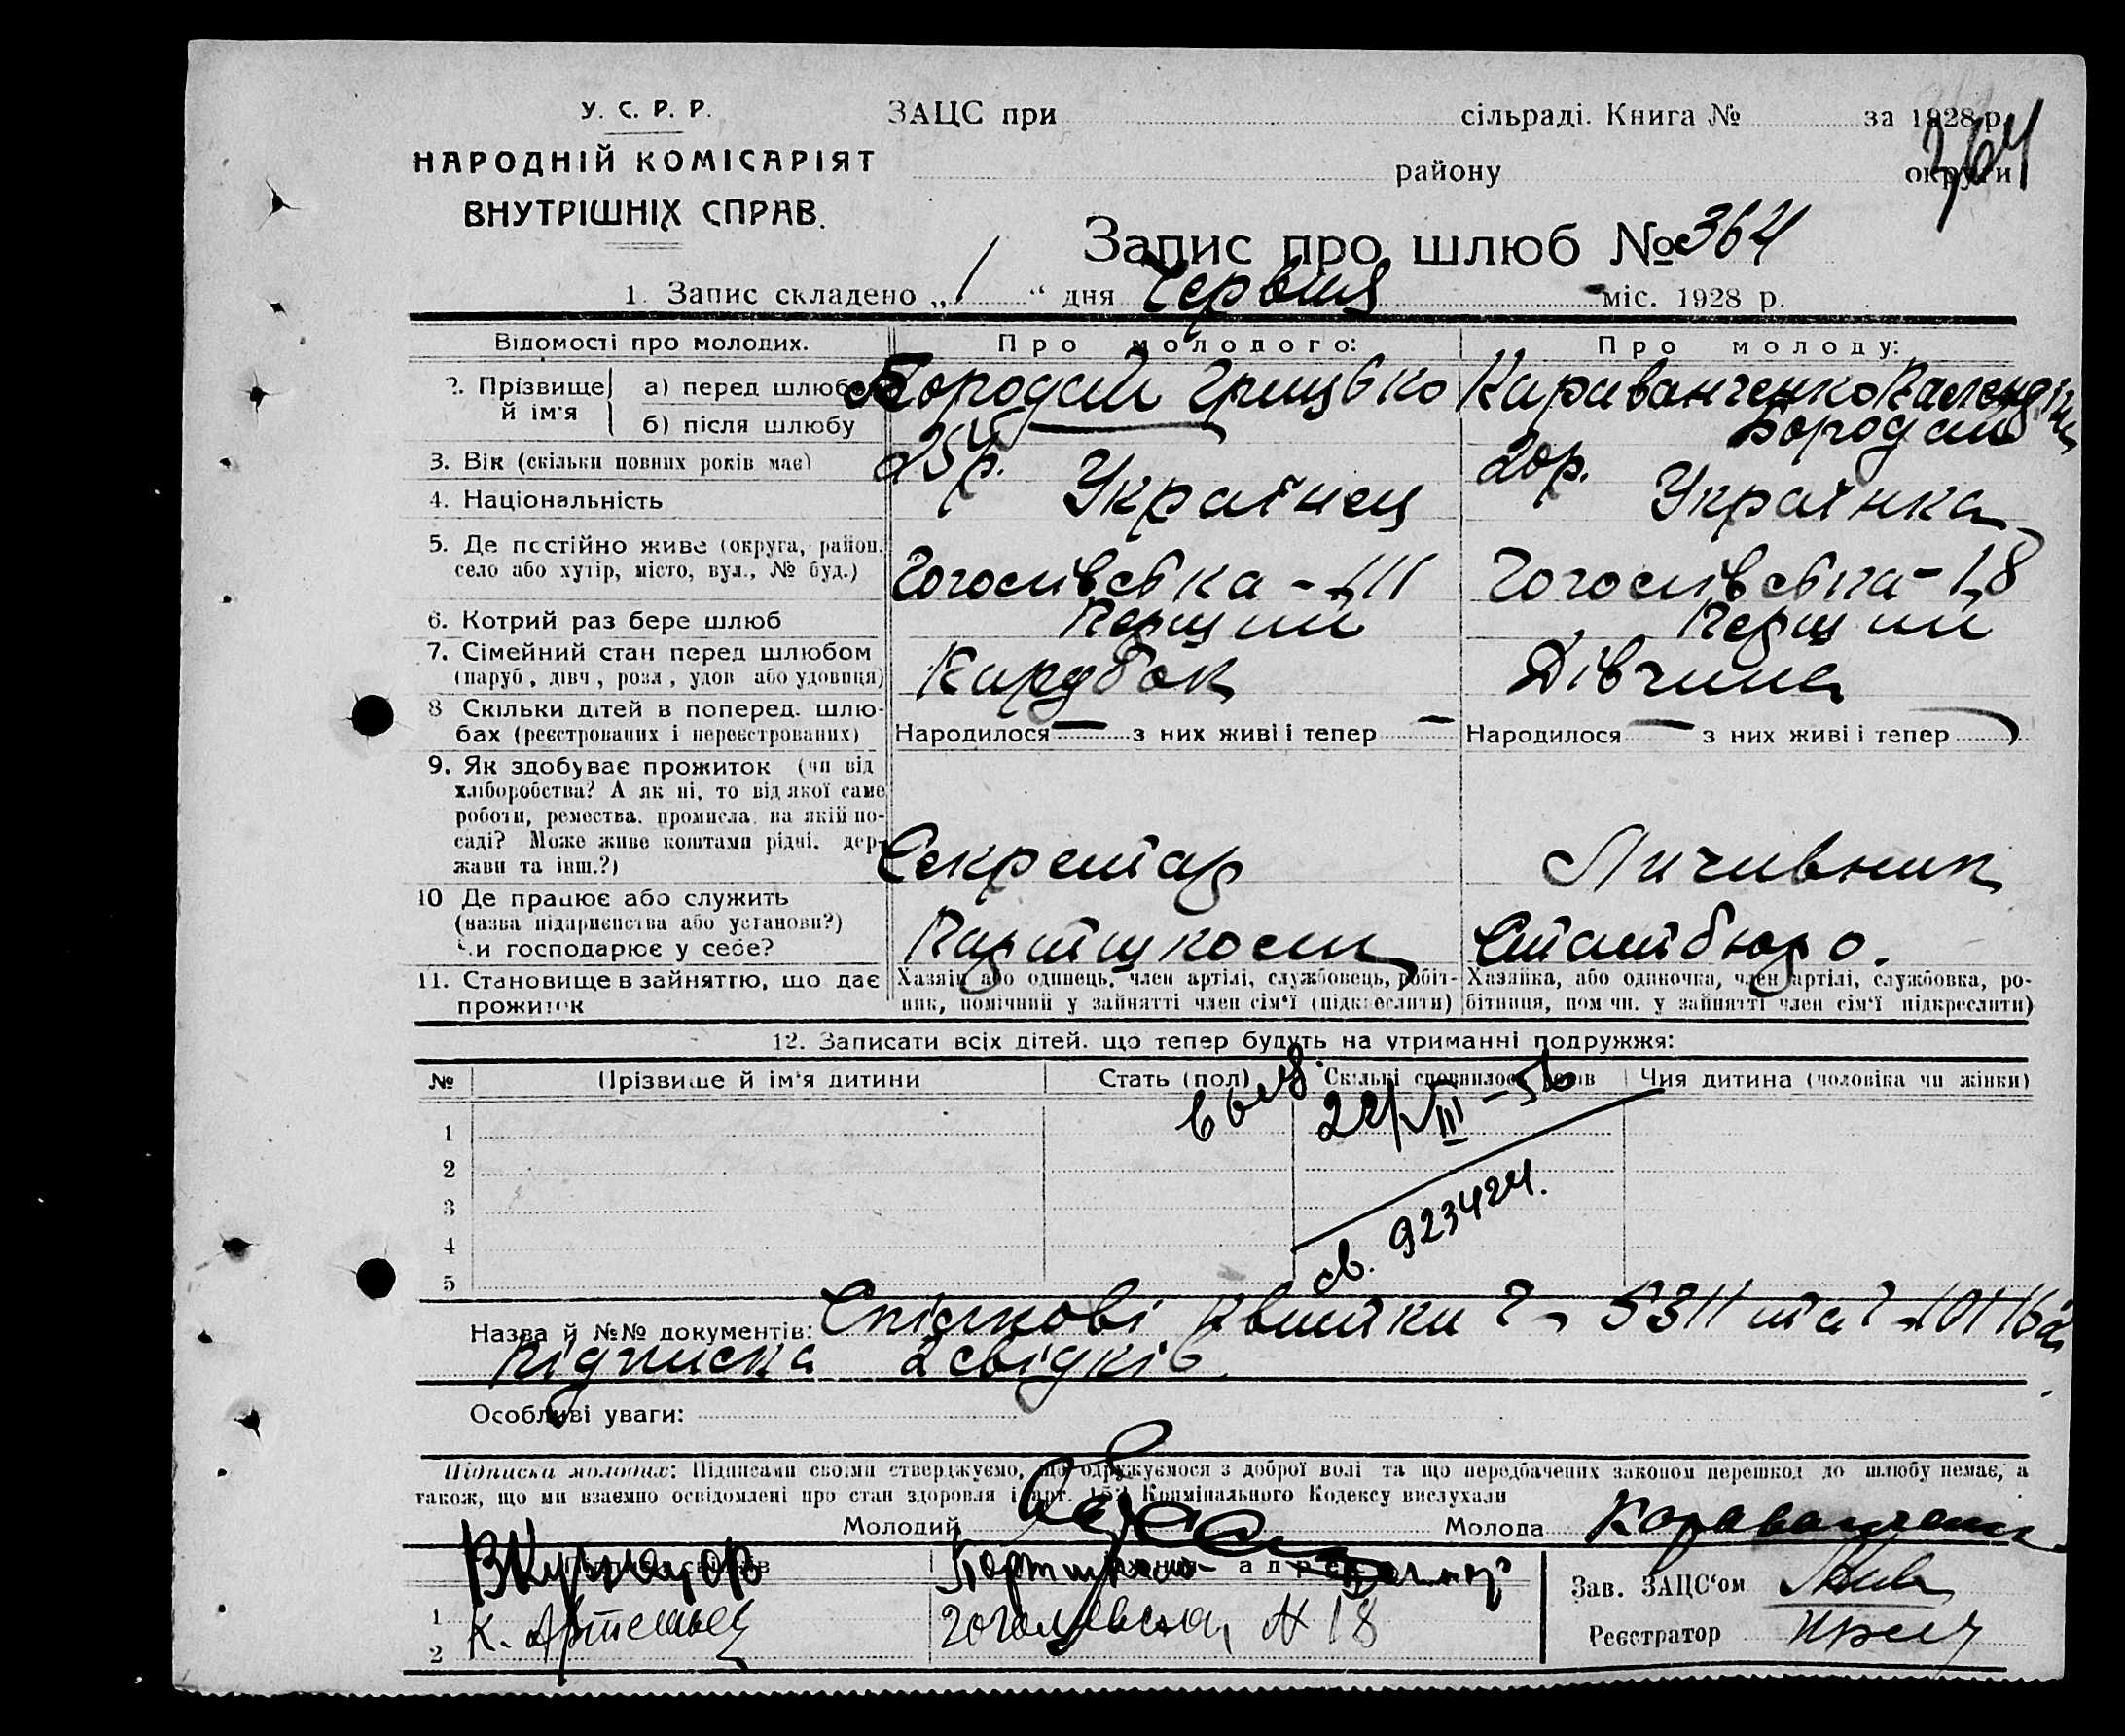 У. С. Р. Р.
НАРОДНІЙ КОМІСАРІЯТ
ВНУТРІШНІХ СПРАВ.
ЗАЦС при сільраді. Книга № за 1928 р.
району округи
364
Запис про шлюб № 364
1. Запис складено „1“ дня Червця міс. 1928 р.
Відомості про молодих. Про молодого: Про молоду:
2. Прізвище й ім'я а) перед шлюбом Бородай Грицько Караванченко Валенд
б) після шлюбу Бородай
3. Вік (скільки повних років має) 25 р. 20 р.
4. Національність Українец Українка
5. Де постійно живе (округа, район, село або хутір, місто, вул., № буд.) Гоголівська - Гоголівська - 18
6. Котрий раз бере шлюб Перший Перший
7. Сімейний стан перед шлюбом (паруб., дівч., розл., удов. або удовиця) Парубок Дівчина
8 Скільки дітей в поперед. шлюбах (реєстрованих і нереєстрованих) Народилося — з них живі і тепер — Народилося — з них живі і тепер
9. Як здобуває прожиток (чи від хліборобства? А як ні, то від якої саме роботи, ремества, промисла, на якій посаді? Може живе коштами рідні, держави та інш.?) Секретар Личивник
10 Де працює або служить (назва підприємства або установи?) Чи господарює у себе? Партшколи Статбюро.
11. Становище в зайняттю, що дає прожиток Хазяїн або одинець, член артілі, службовець, робітник, помічний у зайнятті член сім'ї (підкреслити) Хазяйка, або одиночка, член артілі, службовка, робітниця, помічн. у зайнятті член сім'ї підкреслити)
12. Записати всіх дітей, що тепер будуть на утриманні подружжя:
№ Прізвище й ім'я дитини Стать (пол) Скільки сповнилось років Чия дитина (чоловіка чи жінки)
1
2
3
4
5
22/VIII - 56
св. 923424.
Назва й №№ документів: Спілкові квитки 5311 та
підписка 2 свідків
Особливі уваги:
Підписка молодих: Підписами своїми стверджуємо, що одружуємося з доброї волі та що передбачених законом перешкод до шлюбу немає, а
також, що ми взаємно освідомлені про стан здоровля і арт. 152 Кримінального Кодексу вислухали
Молодий Молода Караванченко
адреса
1
2 К. Гоголевска, № 18
Зав. ЗАЦС'ом
Реєстратор